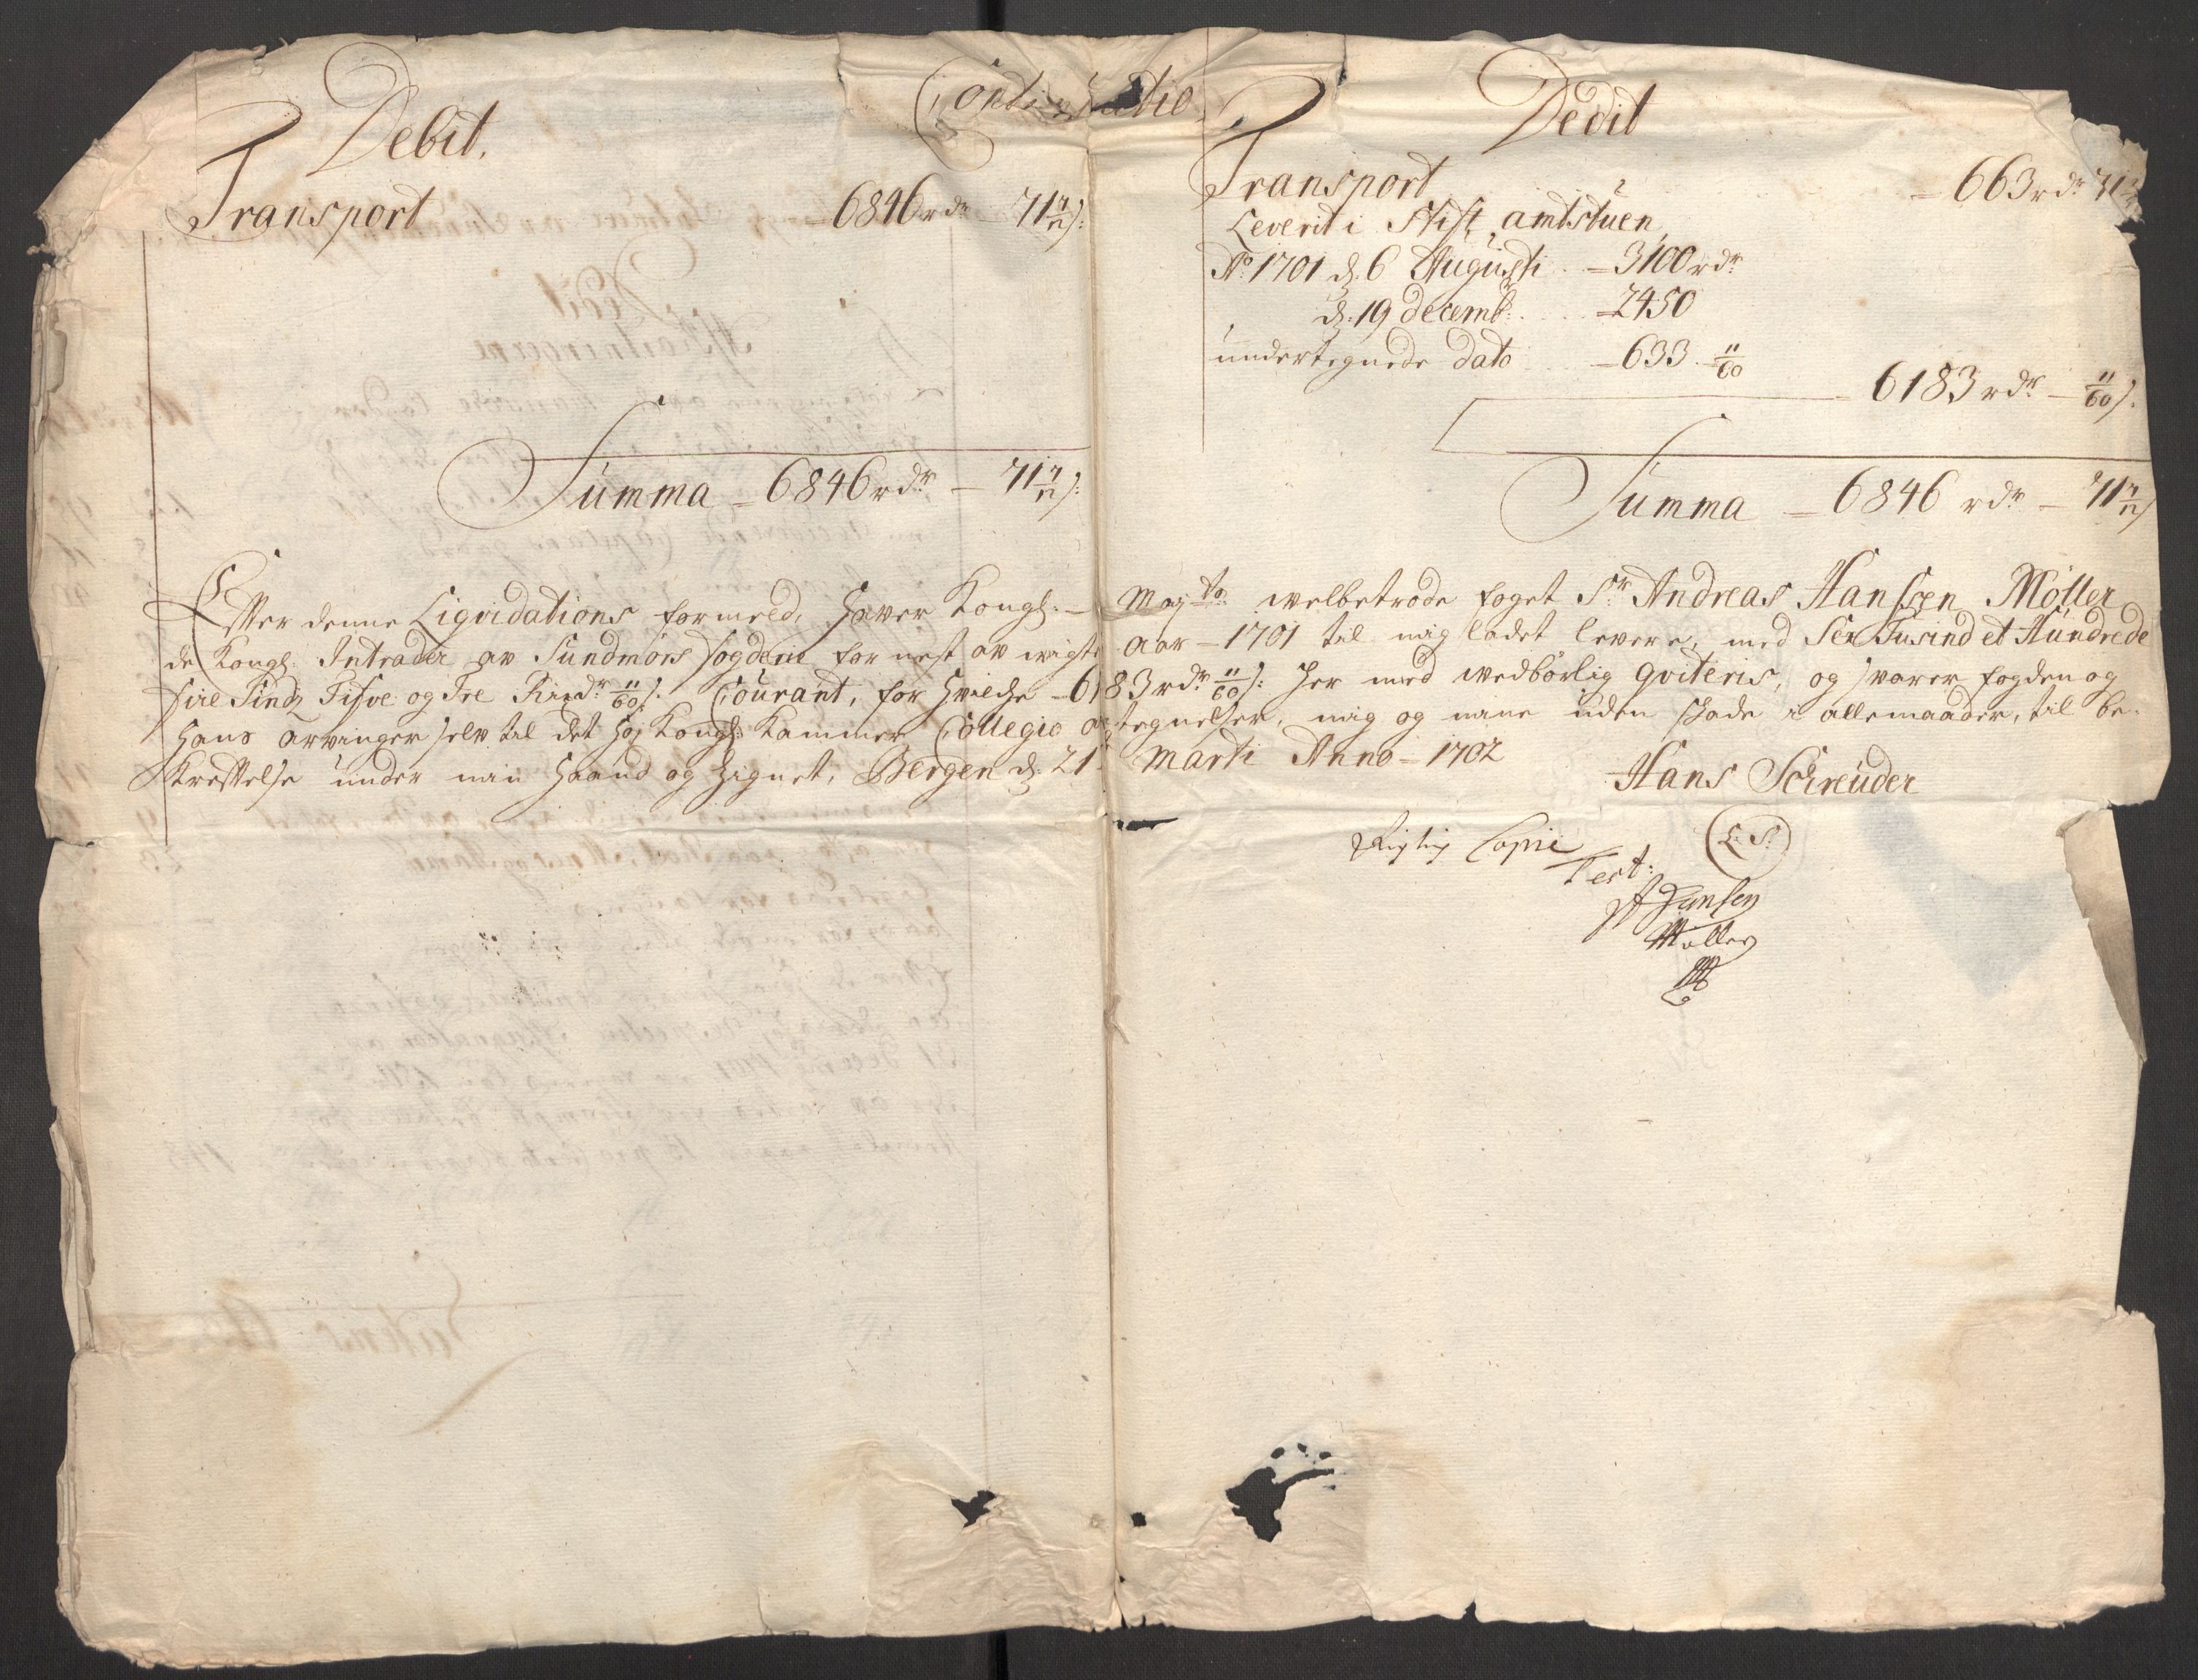 Continuatio
Debit.
Transport — 6846 rdr — 71 7/12 s:
Summa — 6846 rdr — 71 7/12 s:
Dedit
Transport — 663 rdr 71
Leverit i Stift amtstuen
Ao 1701 d. 6 Augusti — 3100 rdr
d: 19 decemb: — 2450
undertegnede dato — 633 - 11/60
6183 rdr — 11/60 s.
Summa — 6846 rdr — 71 7/12 s
Effter denne Liqvidations formeld, haver Kongl: Majts welbetrode foget Sr Andreas Hanssen Möller
de Kongl: Intrader av Sundmørs fogderie for nest av wigte Aar — 1701 til mig ladet levere, med Sex Tusind et Hundrede
fire Sindz Tifve og Tre Rixdr 11/60 s. Courant, for hvilche — 6183 rdr 11/60 s: her med wedbørlig qviteris, og svarer fogden og
hans arvinger selv til det høy Kongl: Kammer Collegio antegnelser, mig og mine uden skade i allemaader, til be-
krefftelse under min haand og Zignet, Bergen d: 21: Marti Anno — 1702
Hans Schreuder
(L: S:)
Rigtig Copie
Test:
A Hansen
Møller